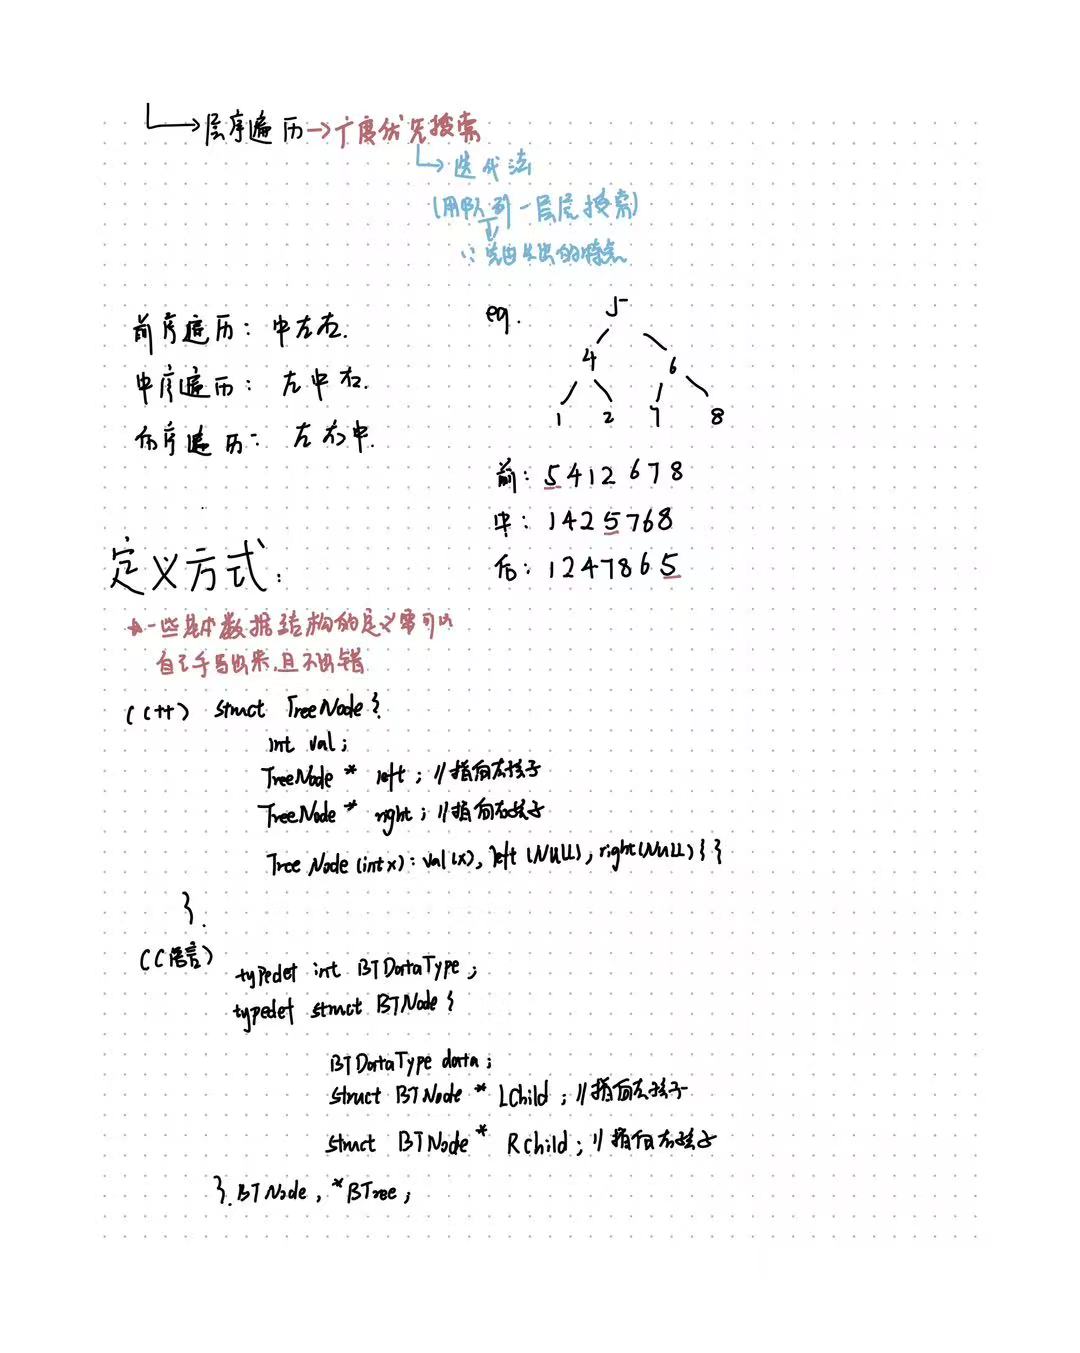 层序遍历→广度优先搜索
迭代法
(用队列一层层搜索)
∵先进先出的特点
前序遍历: 中左右.
中序遍历: 左中右.
后序遍历: 左右中.
eg.
5
4 6
1 2 7 8
前: 5412678
中: 1425768
后: 1247865
定义方式:
一些基本数据结构的定义需可以
自己手写出来,且不出错
(C++) struct TreeNode {
int val;
TreeNode * left; //指向左孩子
TreeNode * right; //指向右孩子
TreeNode (int x): val(x), left(NULL), right(NULL) { }
}.
(C语言)
typedef int BTDataType;
typedef struct BTNode {
BTDataType data;
struct BTNode * LChild; //指向左孩子
struct BTNode * RChild; //指向右孩子
}. BTNode, *BTree;